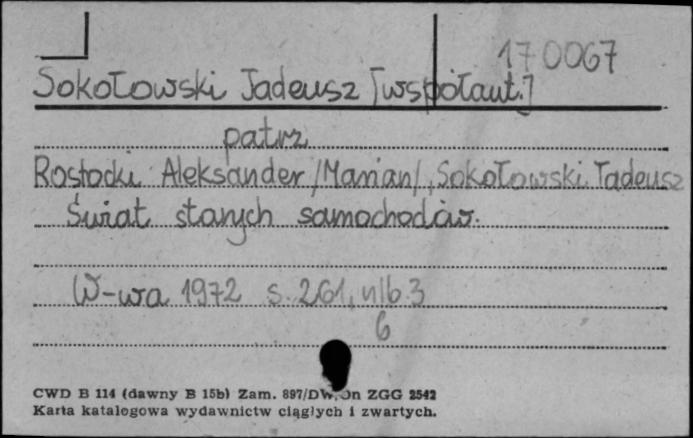 170067
Sokołowski Tadeusz [współaut.]
patrz
Rostocki Aleksander /Marian/, Sokołowski Tadeusz
Świat starych samochodów.
W-wa 1972 s. 261, nlb 3
6
CWD B 114 (dawny B 15b) Zam. 897/DW/Jn ZGG 2542
Karta katalogowa wydawnictw ciągłych i zwartych.